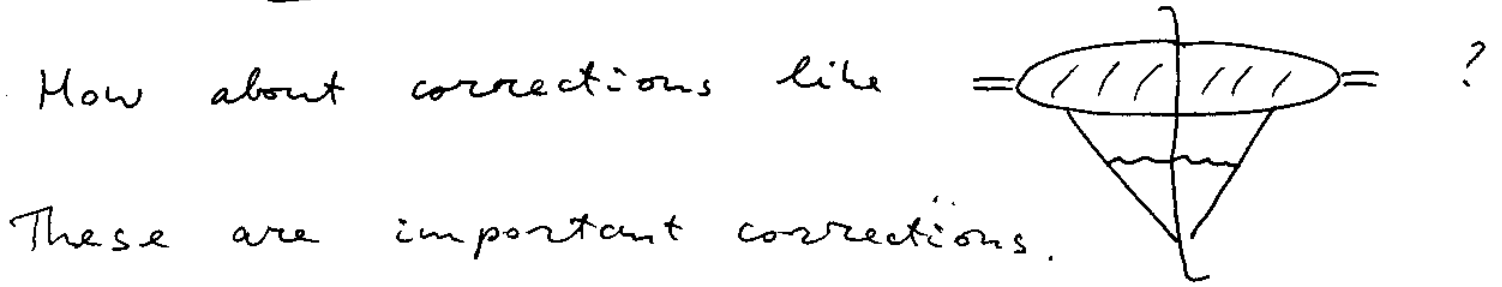 How about corrections like ?
These are important corrections.